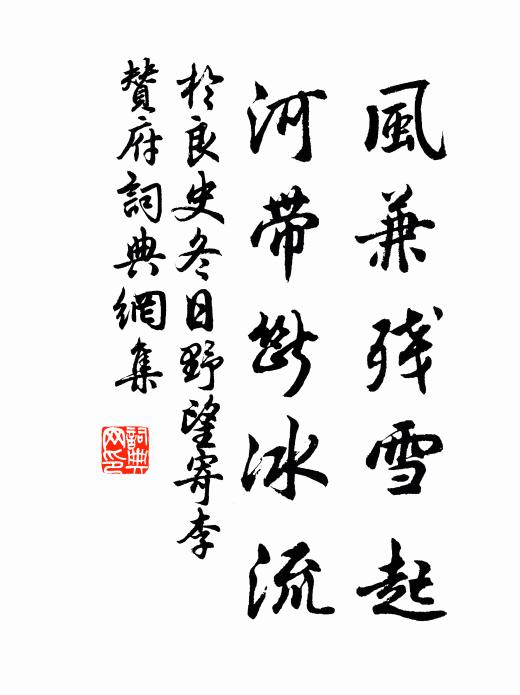 風兼残雪起
河帶斷冰流
於良史冬日野望寄李
贊府詞典網集
詞典
网印